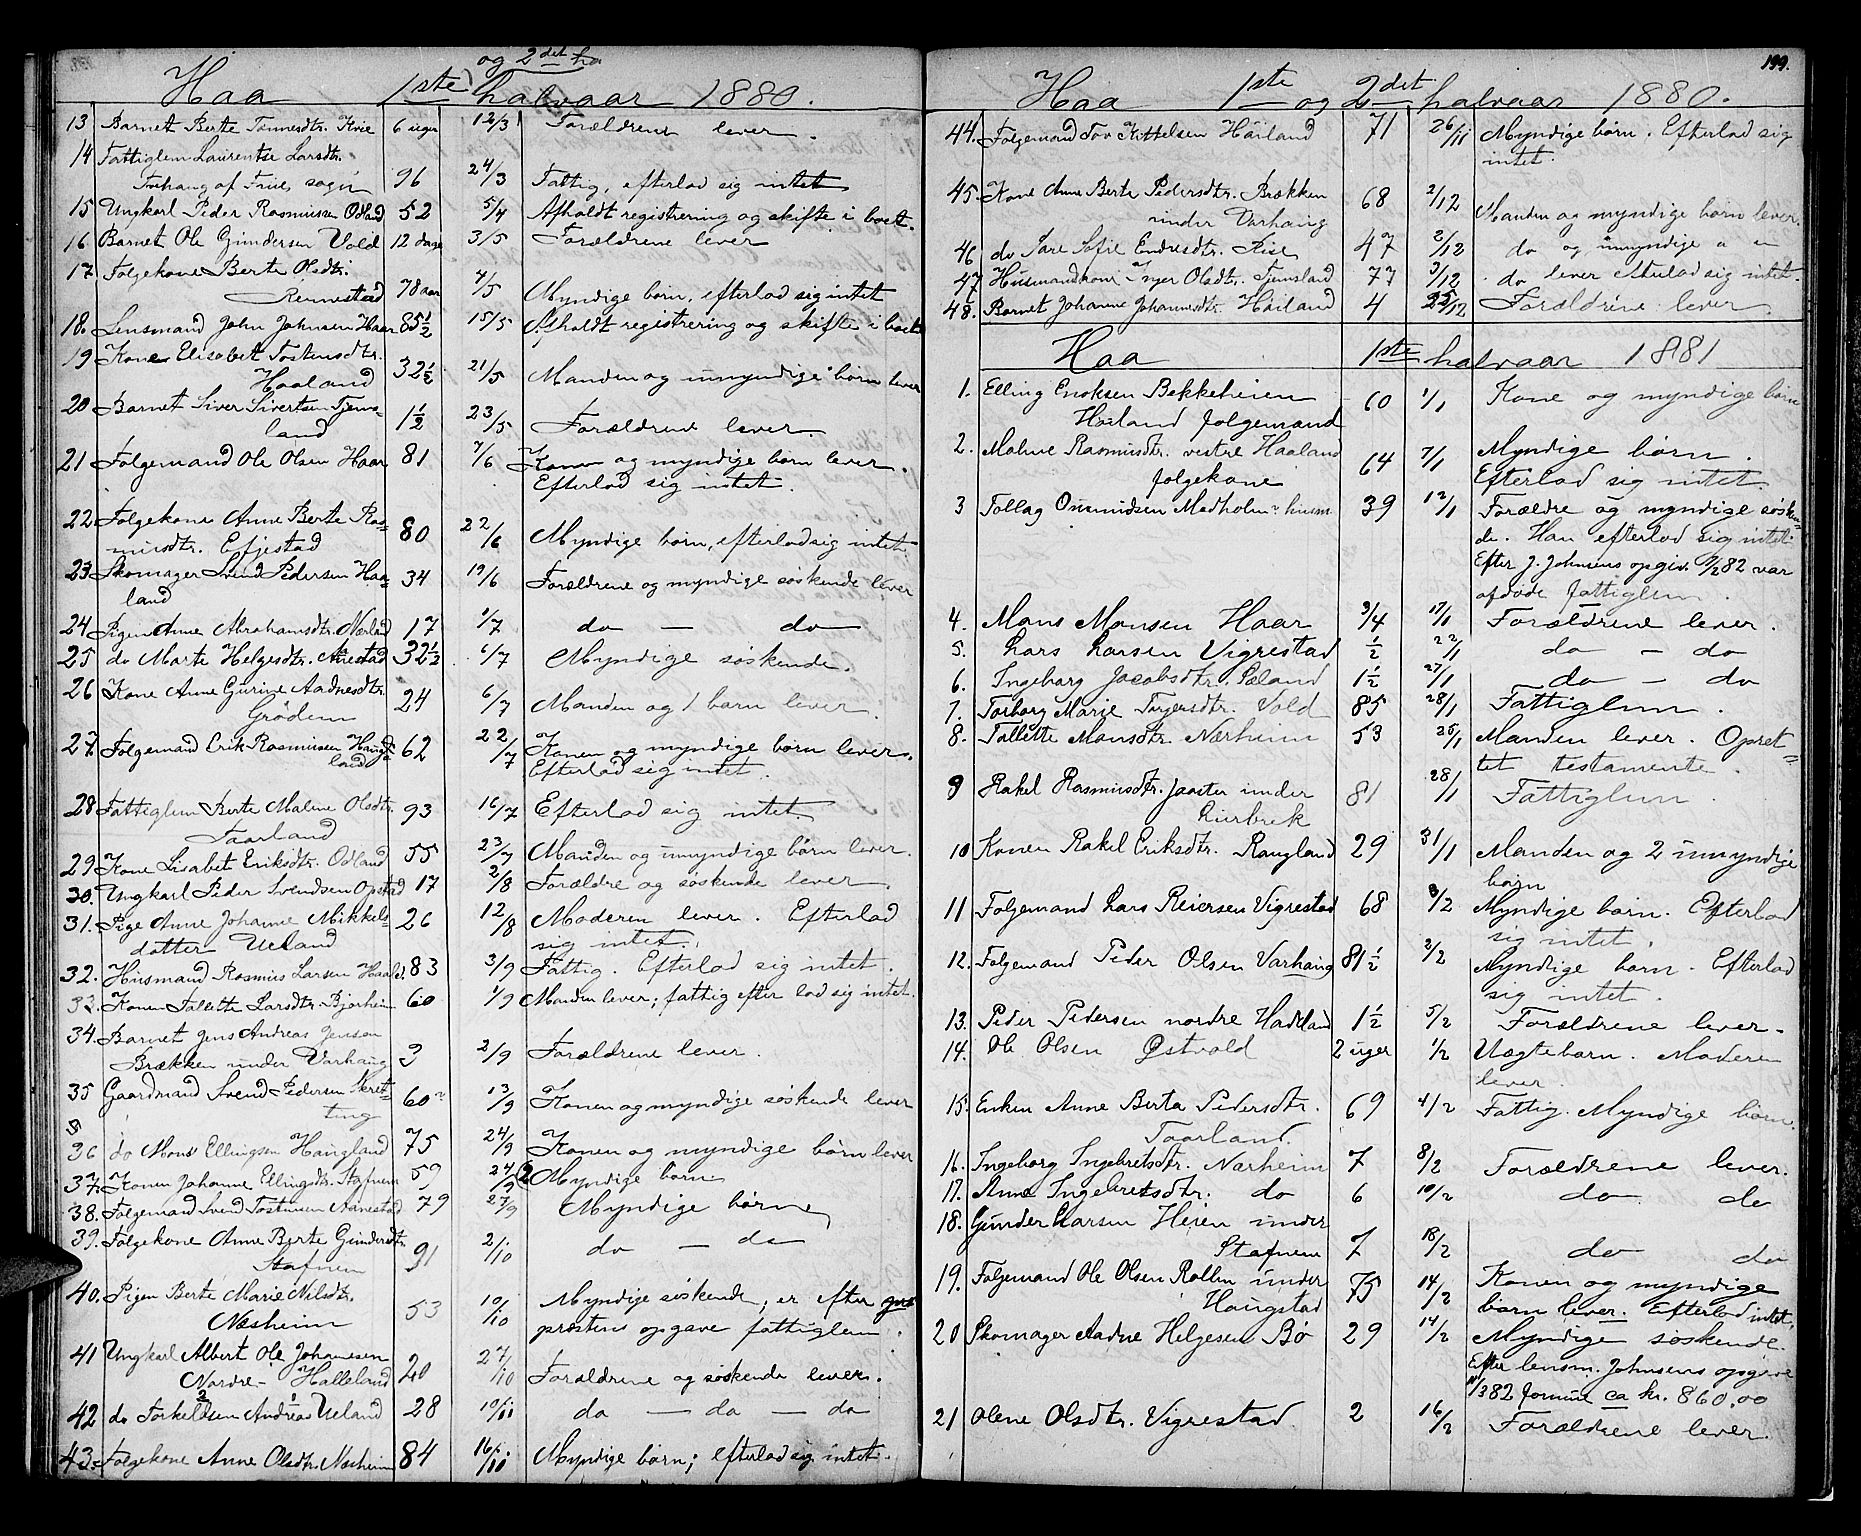 Haa 1ste og 2det ha halvaar 1880.
13 Barnet Berte Tønnesdtr. Kvie 6 uger 12/3 Forældrene lever.
14 Fattiglem Laurentse Larsdtr.
af sogn 96 24/3 Fattig, efterlod sig intet
15 Ungkarl Peder Rasmussen Odland 52 5/4 Afholdt registrering og skifte i boet.
16 Barnet Ole Gundersen Vold 12 dage 3/5 Forældrene lever
17 Folgekone Berte Olsdtr.
Rennestad 78 aar 4/5 Myndige børn, efterlod sig intet
18. Lensmand John Johnsen Haar 85½ 15/5 Afholdt registrering og skifte i boet
19 Kone Elisabet Tostensdtr.
Haaland 32½ 21/5 Manden og umyndige børn lever
20 Barnet Siver Sivertsen Tjems-
land 1½ 23/5 Forældrene lever.
21 Folgemand Ole Olsen Haar 81 7/6 Konen og myndige børn lever.
Efterlod sig intet.
22 Folgekone Anne Berte Ras-
musdtr. Efjestad 80 22/6 Myndige børn, efterlod sig intet.
23 Skomager Svend Pedersen Haa-
land 34 19/6 Forældrene og myndige søskende lever
24 Pigen Anne Abrahamsdtr. Nærland 17 1/7 do — do
25 do Marte Helgesdtr. Aanestad 32½ 6/7 Myndige søskende.
26 Kone Anne Gurine Aadnesdtr.
Grødem 24 6/7 Manden og 1 barn lever.
27. Folgemand Erik Rasmussen Haug-
land 62 22/7 Konen og myndige børn lever.
Efterlod sig intet.
28 Fattiglem Berte Malene Olsdtr.
Taarland 93 16/7 Efterlod sig intet
29. Kone Lisabet Eriksdtr. Odland 55 23/7 Manden og umyndige børn lever.
30. Ungkarl Peder Svendsen Opstad 17 2/8 Forældre og søskende lever.
31. Pige Anne Johanne Mikkels-
datter Ueland 26 12/8 Moderen lever. Efterlod
sig intet.
32. Husmand Rasmus Larsen Haald. 83 3/9 Fattig. Efterlod sig intet.
33. Konen Tallette Larsdtr. Bjorheim 60 1/9 Manden lever; fattig efter lod sig intet.
34. Barnet Jens Andreas Jensen
Brækken under Varhaug 3 2/9 Forældrene lever.
35 Gaardmand Svend Pedersen Skret-
ting 60 13/9 Konen og myndige søskende lever
36 do Mons Ellingsen Haugland 75 24/9 Konen og myndige børn lever
37. Konen Johanne Ellingsdtr. Stafnem 59 24/9 Myndige børn
38. Folgemand Svend Tostensen Aanestad 79 27/9 Myndige børn
39. Folgekone Anne Berte Gundersdtr.
Stafnem 91 2/10 do — do
40. Pigen Berte Marie Nilsdtr.
Næsheim 53 10/10 Myndige søskende; er efter
præstens opgave fattiglem.
41 Ungkarl Albert Ole Johannesen
Nordre-Halleland 20 27/10 Forældrene og søskende lever.
42 do Torkeldsen Andreas Ueland 28 10/11 do — do — do
43. Folgekone Anne Olsdtr. Næsheim 84 16/11 Myndige børn; efterlod sig intet.
199.
Haa 1ste og 2det halvaar 1880.
44. Folgemand Tov Kittelsen Høiland 71 26/11 Myndige børn. Efterlod sig
intet.
45. Kone Anne Berte Pedersdtr. Brækken
under Varhaug 68 2/12 Manden og myndige børn lever.
46 do Sare Sofie Endresdtr. 47 2/12 do og umyndige " "
47 Husmandskone Inger Olsdtr. Tjemsland 77 3/12 do lever Efterlod sig intet.
48. Barnet Johanne Johannesdtr. Høiland 4 25/12 Forældrene lever.
Haa 1ste halvaar 1881
1. Elling Enoksen Bekkeheien
Høiland folgemand 60 1/1 Kone og myndige børn
2. Malene Rasmusdtr. vestre Haaland
folgekone 64 7/1 Myndige børn.
Efterlod sig intet
3 Tollag Osmundsen Madholm husm 39 12/1 Forældre og myndige søsken-
de. Han efterlod sig intet.
Efter J. Johnsens opgiv. /2 82 var
afdøde fattiglem.
4. Mons Monsen Haar 3/4 17/1 Forældrene lever.
5. Lars Larsen Vigrestad ½ 22/1 do — do
6. Ingeborg Jacobsdtr. Søland 1½ 27/1 do — do
7. Torborg Marie Torgersdtr. Vold 85 28/1 Fattiglem.
8. Tallette Monsdtr. Nærheim 53 25/1 Manden lever. Opret-
tet testamente.
9 Rakel Rasmusdtr. Jaater under
81 28/1 Fattiglem.
10 Konen Rakel Eriksdtr. Raugland 29 31/1 Manden og 2 umyndige
børn
11 Folgemand Lars Reiersen Vigrestad 68 3/2 Myndige børn. Efterlod
sig intet.
12. Folgemand Peder Olsen Varhaug 81½ 2/2 Myndige børn. Efterlod
sig intet.
13. Peder Pedersen nordre Hadland 1½ 5/2 Forældrene lever.
14. Ole Olsen Østvold 2 uger 1/2 Uægtebarn. Moderen
lever.
15. Enken Anne Berta Pedersdtr.
Taarland. 69 4/2 Fattig. Myndige børn.
16. Ingeborg Ingebretsdtr. Nærheim 7 8/2 Forældrene lever.
17. Anne Ingebretsdtr. do 6 10/2 do do
18. Gunder Larsen Heien under
Stafnem 7 18/2 do do
19. Folgemand Ole Olsen Rollen under
Haugstad 75 14/2 Konen og myndige
børn lever. Efterlod intet.
20 Skomager Aadne Helgesen Bø 29 14/2 Myndige søskende.
Efter lensm. Johnsens opgave
/3 82 formue ca kr. 860,00
21 Olene Olsdtr. Vigrestad. 2 16/2 Forældrene lever.